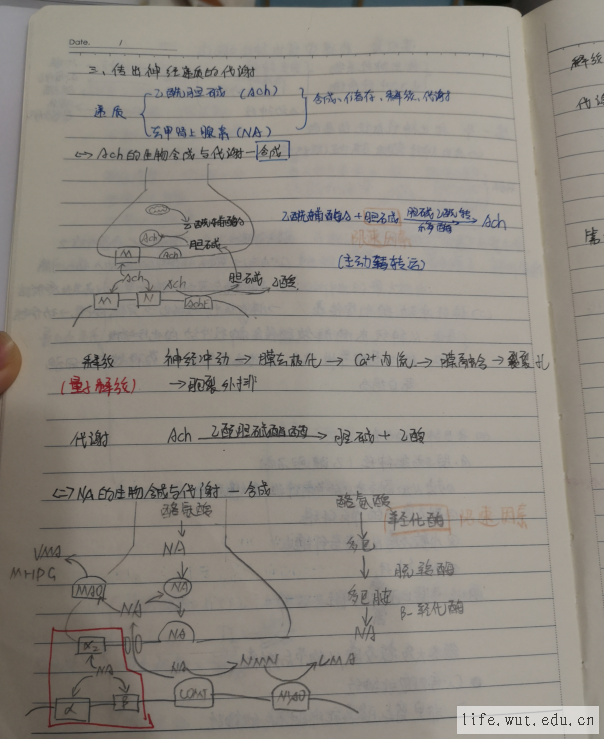 Date. /
三、传出神经递质的代谢
乙酰胆碱 (Ach)
递质
合成、储存、释放、代谢
去甲肾上腺素 (NA)
<一> Ach的生物合成与代谢—合成
乙酰辅酶A
Ach
胆碱
M
Ach
Ach Ach
M N AchE
胆碱 乙酸
乙酰辅酶A + 胆碱 胆碱乙酰转移酶 Ach
限速因子
(主动转运)
释放 神经冲动→膜去极化→Ca²⁺内流→膜融合→裂孔
(量子释放) →胞裂外排
代谢 Ach 乙酰胆碱酯酶→胆碱+乙酸
<二> NA的生物合成与代谢—合成
酪氨酸
NA
NA
VMA
MHPG
MAO
NA
NA
α₂
NA
α β
NA NMN VMA
COMT MAO
酪氨酸
羟化酶 限速因素
多巴
脱羧酶
多巴胺
β-羟化酶
NA
释放
代谢
life.wut.edu.cn